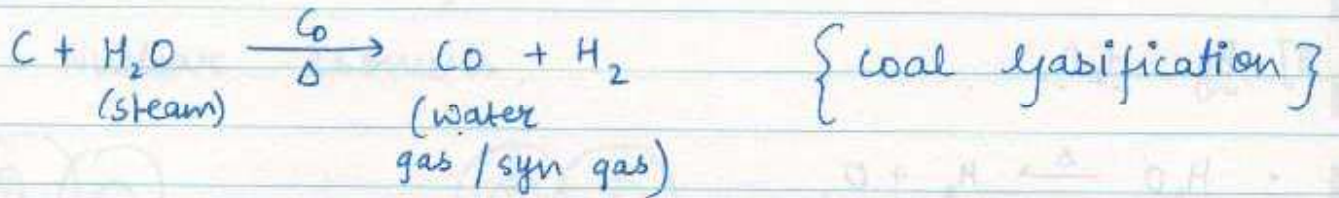 C + H₂O \xrightarrow[Δ]{Co} CO + H₂ { coal gasification }
(steam) (water
gas / syn gas)